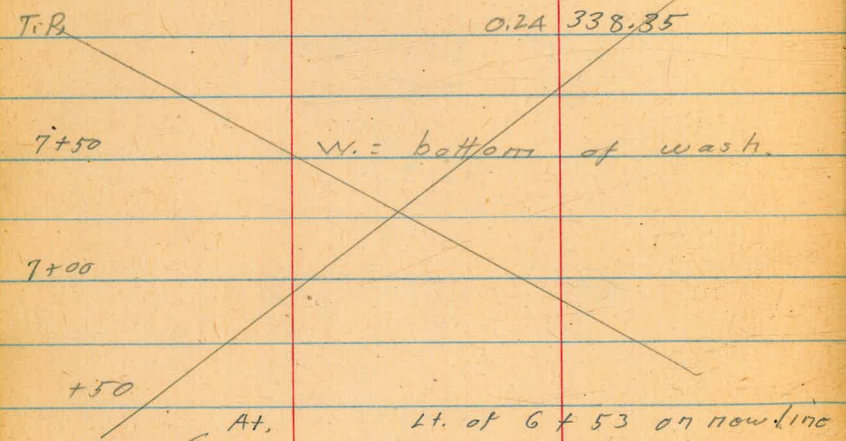 T.P. 0.24 338.35
7+50 W. = bottom of wash.
7+00
+50
At. Lt. of 6+53 on now line